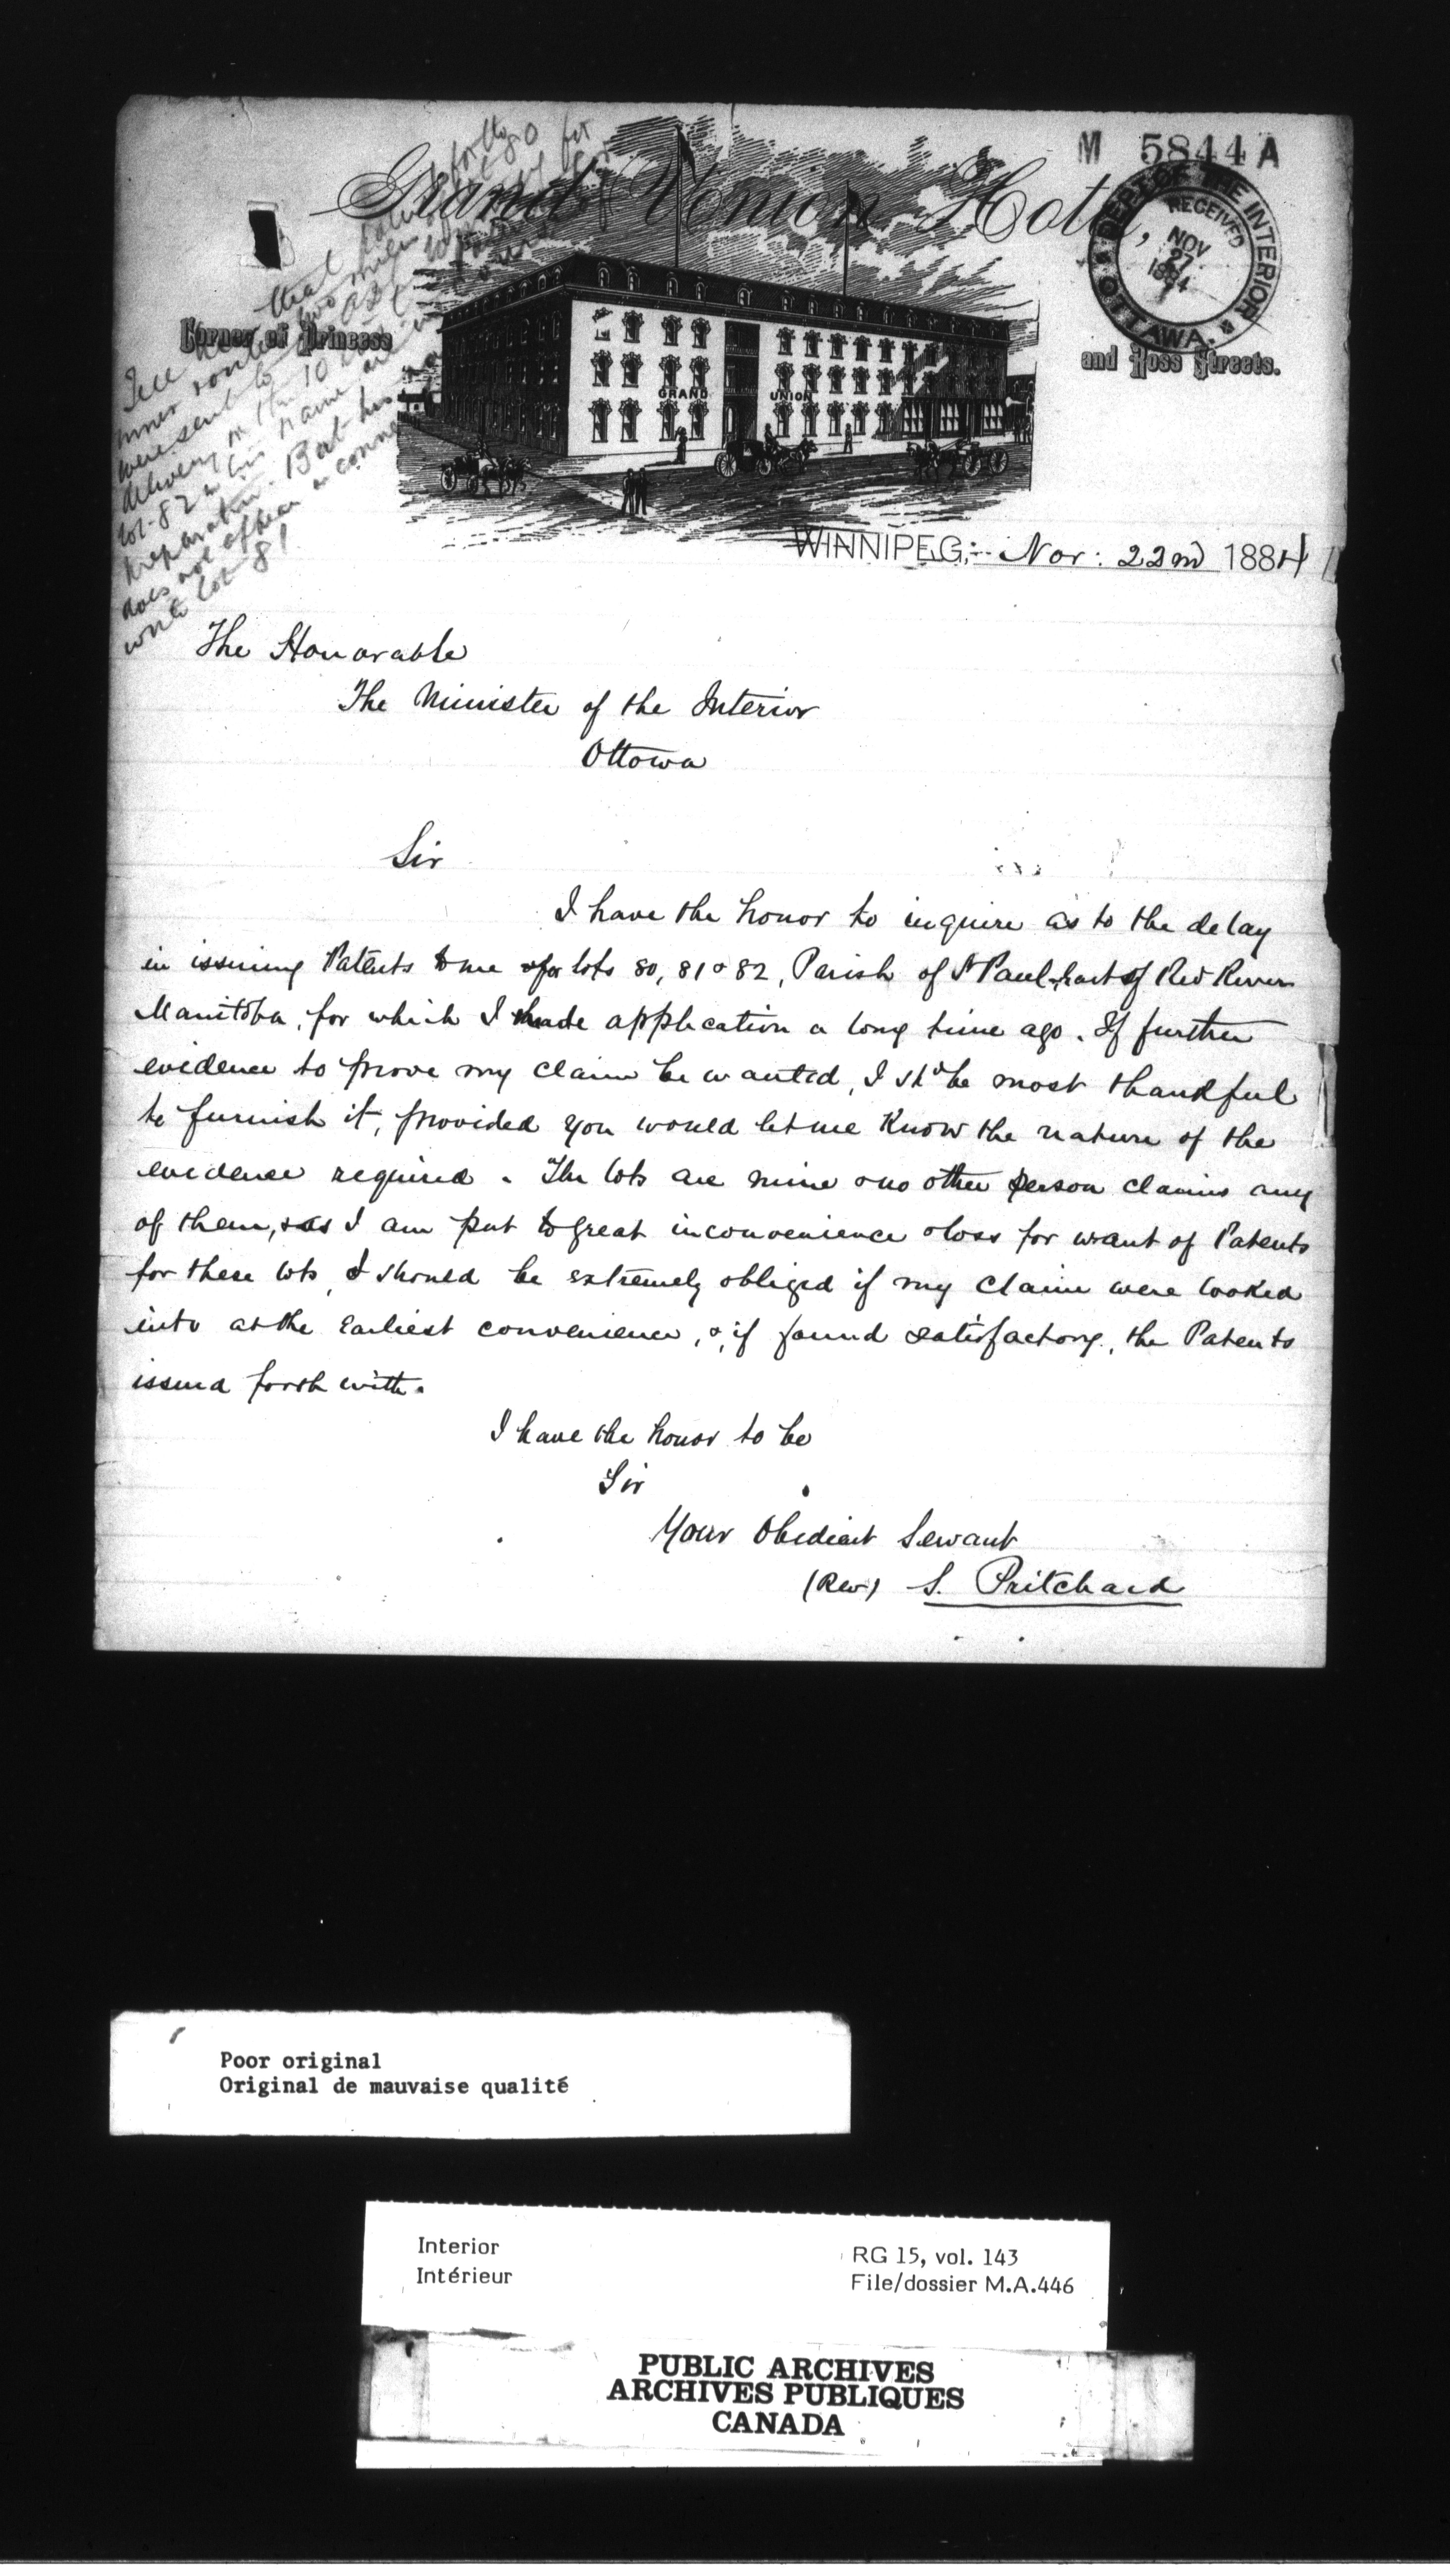 M 5844 A
Grand Union Hotel,
DEPT. OF THE INTERIOR
RECEIVED
NOV
27
1884
OTTAWA.
Corner of Princess
and Ross Streets.
GRAND UNION
Tell
that
two
were sent to
delivery in the 10
lot 82 in his name are in
preparation. But his
does not appear in connec
with lot 81
WINNIPEG, Nov: 22nd 1884
The Honorable
The Minister of the Interior
Ottowa
Sir
I have the honor to inquire as to the delay
in issuing Patents to me for lots 80, 81 & 82, Parish of St Paul, East of Red River
Manitoba, for which I made application a long time ago. If further
evidence to prove my claim be wanted, I shd be most thankful
to furnish it, provided you would let me know the nature of the
evidence required. The lots are mine & no other person claims any
of them, & as I am put to great inconvenience & loss for want of Patents
for these lots, I should be extremely obliged if my claim were looked
into at the earliest convenience, &, if found satisfactory, the Patents
issued forthwith.
I have the honor to be
Sir
Your Obedient Servant
(Rev) S. Pritchard
Poor original
Original de mauvaise qualité
Interior
Intérieur
RG 15, vol. 143
File/dossier M.A.446
PUBLIC ARCHIVES
ARCHIVES PUBLIQUES
CANADA